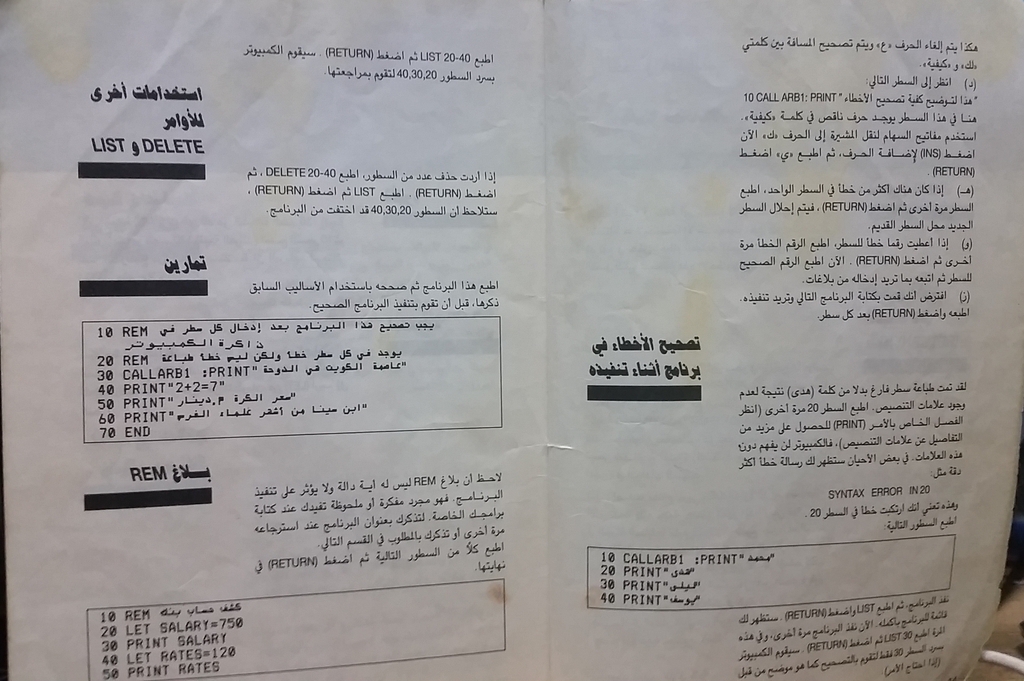 هكذا يتم إلغاء الحرف «ع» ويتم تصحيح المسافة بين كلمتي
«لك» و «كيفية».
(د) انظر إلى السطر التالي:
10 CALL ARB1: PRINT "هذا لتوضيح كفية تصحيح الأخطاء"
هنا في هذا السطر يوجد حرف ناقص في كلمة «كيفية».
استخدم مفاتيح السهام لنقل المشيرة إلى الحرف «ك» الآن
اضغط (INS) لإضافة الحرف، ثم اطبع «ي» اضغط
(RETURN) .
(هـ) إذا كان هناك أكثر من خطأ في السطر الواحد، اطبع
السطر مرة أخرى ثم اضغط (RETURN) ، فيتم إحلال السطر
الجديد محل السطر القديم.
(و) إذا أعطيت رقما خطأ للسطر، اطبع الرقم الخطأ مرة
أخرى ثم اضغط (RETURN) . الآن اطبع الرقم الصحيح
للسطر ثم اتبعه بما تريد إدخاله من بلاغات.
(ز) افترض أنك قمت بكتابة البرنامج التالي وتريد تنفيذه.
اطبعه واضغط (RETURN) بعد كل سطر.
تصحيح الأخطاء في
برنامج أثناء تنفيذه
لقد تمت طباعة سطر فارغ بدلا من كلمة (هدى) نتيجة لعدم
وجود علامات التنصيص. اطبع السطر 20 مرة أخرى (انظر
الفصل الخاص بالأمر (PRINT) للحصول على مزيد من
التفاصيل عن علامات التنصيص)، فالكمبيوتر لن يفهم دون
هذه العلامات. في بعض الأحيان ستظهر لك رسالة خطأ أكثر
دقة مثل:
SYNTAX ERROR IN 20
وهذه تعني أنك ارتكبت خطأ في السطر 20 .
اطبع السطور التالية:
10 CALLARB1 :PRINT"محمد"
20 PRINT"هدى"
30 PRINT"ليلى"
40 PRINT"يوسف"
نفذ البرنامج، ثم اطبع LIST واضغط (RETURN) . ستظهر لك
قائمة للبرنامج بأكمله. الآن نفذ البرنامج مرة أخرى، وفي هذه
المرة اطبع LIST 30 ثم اضغط (RETURN) . سيقوم الكمبيوتر
بسرد السطر 30 فقط لتقوم بالتصحيح كما هو موضح من قبل
(إذا احتاج الأمر).
اطبع LIST 20-40 ثم اضغط (RETURN) . سيقوم الكمبيوتر
بسرد السطور 40,30,20 لتقوم بمراجعتها.
استخدامات أخرى
للأوامر
LIST و DELETE
إذا أردت حذف عدد من السطور، اطبع DELETE 20-40 ، ثم
اضغط (RETURN) . اطبع LIST ثم اضغط (RETURN) ،
ستلاحظ أن السطور 40,30,20 قد اختفت من البرنامج.
تمارين
اطبع هذا البرنامج ثم صححه باستخدام الأساليب السابق
ذكرها، قبل أن تقوم بتنفيذ البرنامج الصحيح.
10 REM يجب تصحيح هذا البرنامج بعد إدخال كل سطر في
ذاكرة الكمبيوتر
20 REM يوجد في كل سطر خطأ ولكن ليس خطأ طباعة
30 CALLARB1 :PRINT"عاصمة الكويت في الدوحة"
40 PRINT"2+2=7"
50 PRINT"سعر الكرة م.دينار"
60 PRINT"ابن سينا من أشهر علماء الفرس"
70 END
بــلاغ REM
لاحظ أن بلاغ REM ليس له أية دالة ولا يؤثر على تنفيذ
البرنامج. فهو مجرد مفكرة أو ملحوظة تفيدك عند كتابة
برامجك الخاصة. لتذكرك بعنوان البرنامج عند استرجاعه
مرة أخرى أو تذكرك بالمطلوب في القسم التالي.
اطبع كلاً من السطور التالية ثم اضغط (RETURN) في
نهايتها.
10 REM كشف حساب بنك
20 LET SALARY=750
30 PRINT SALARY
40 LET RATES=120
50 PRINT RATES